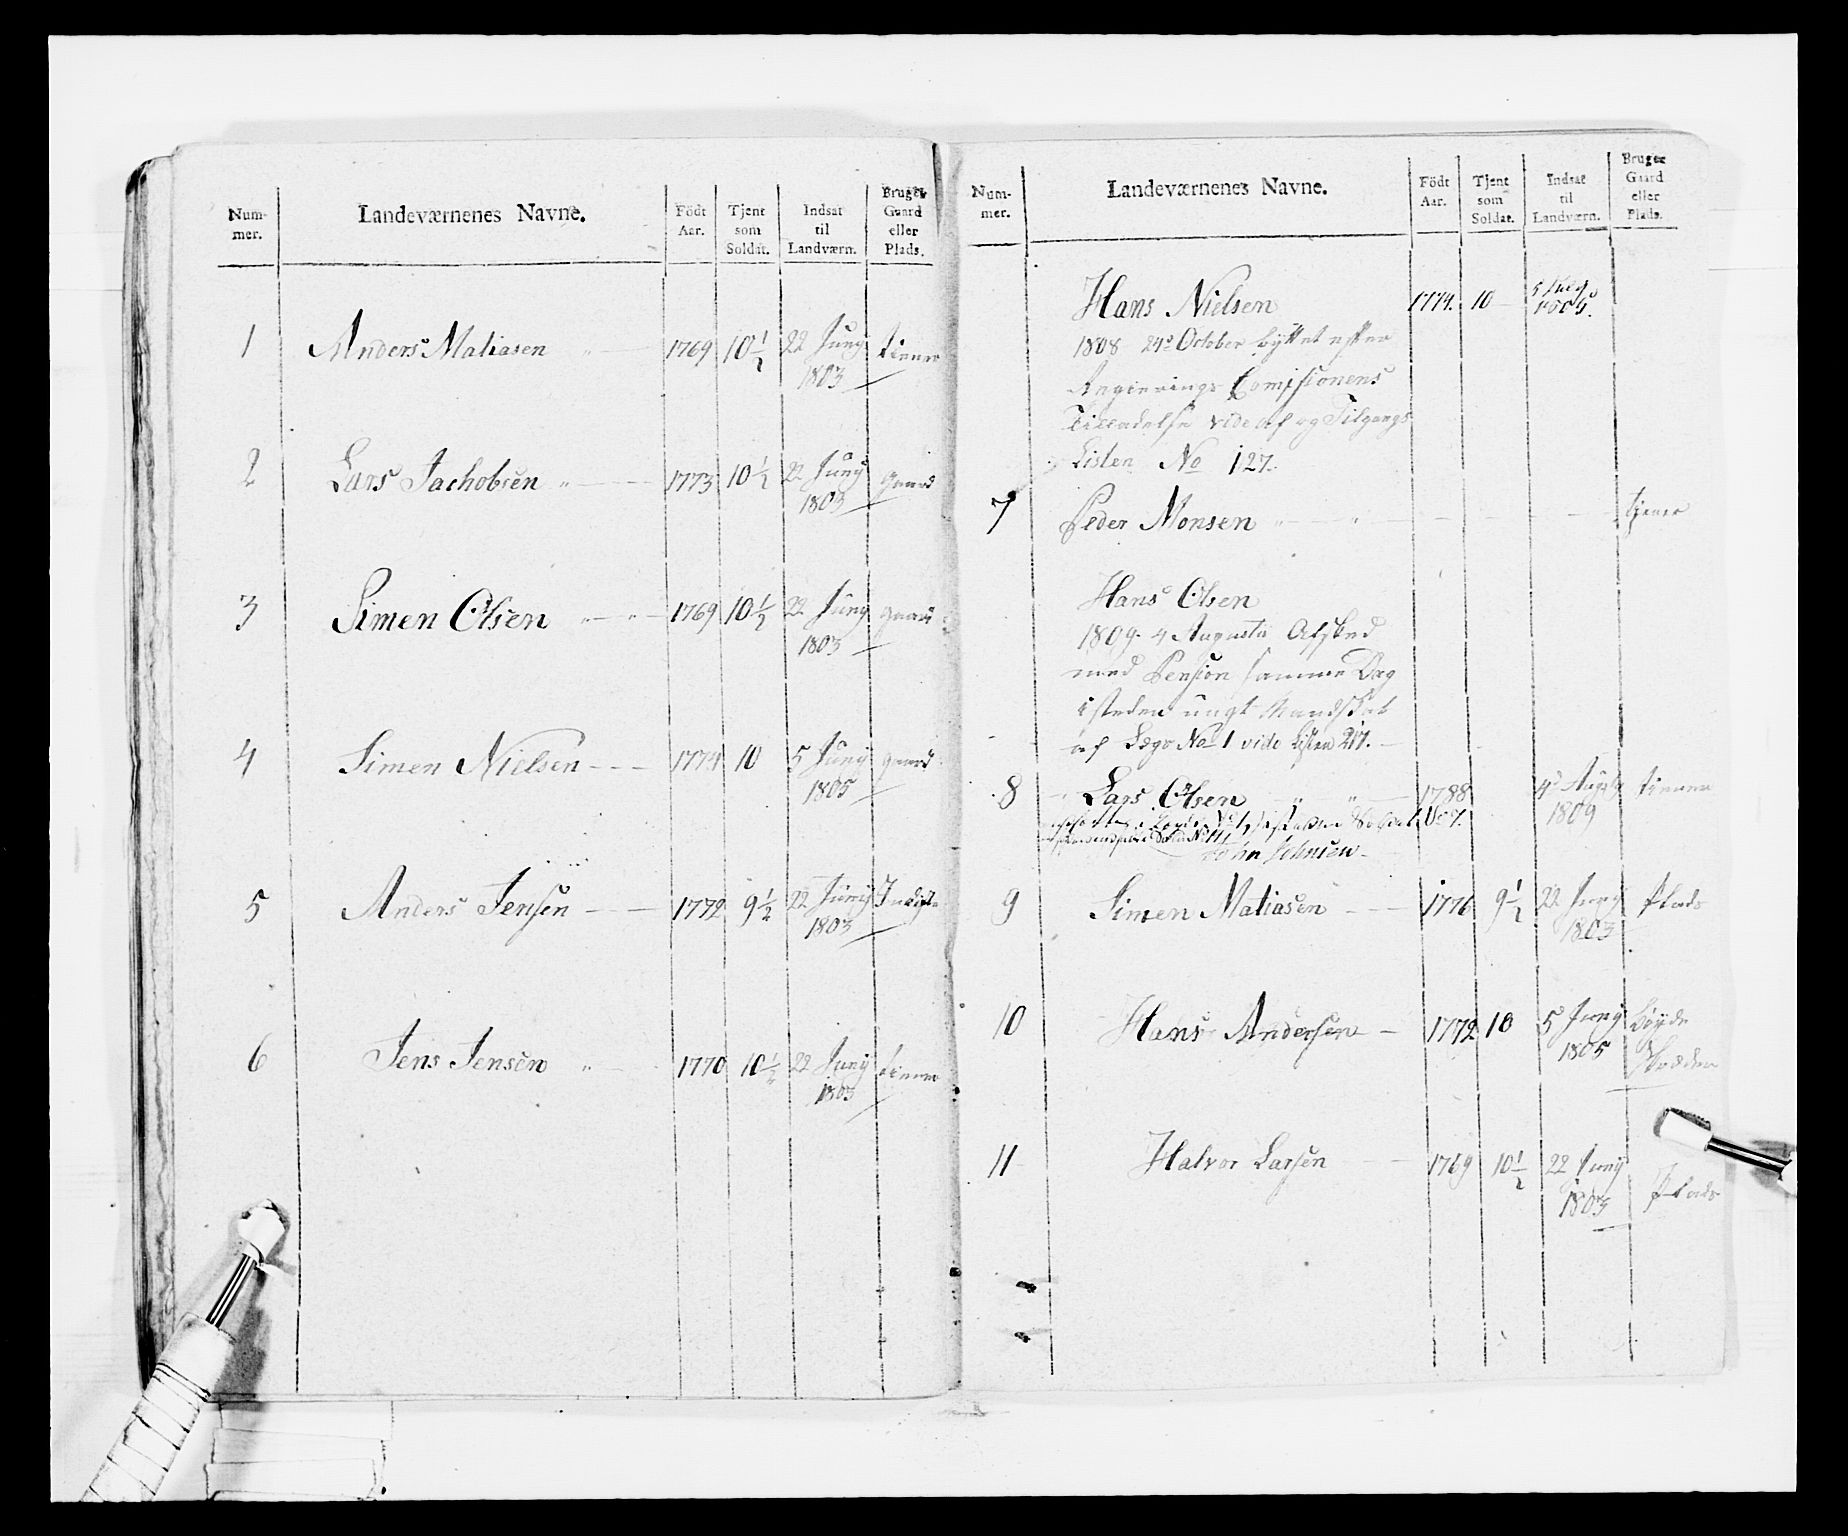 Num-
mer.
Landeværnenes Navne.
Födt
Aar.
Tjent
som
Soldat.
Indsat
til
Landværn.
Bruger
Gaard
eller
Plads.
1 Anders Matiasen 1769 10 1/2 22 Juny tiener
1803
2 Lars Jachobsen 1773 10 1/2 22 Juny gaard
1803
3 Simen Olsen 1769 10 1/2 22 Juny gaard
1803
4 Simen Nielsen 1774 10 5 Juny gaard
1805
5 Anders Jensen 1772 9 1/2 22 Juny
1803
6 Jens Jensen 1770 10 1/2 22 Juny tiener
1803
Num-
mer.
Landeværnenes Navne.
Födt
Aar.
Tjent
som
Soldat.
Indsat
til
Landværn.
Bruger
Gaard
eller
Plads.
Hans Nielsen 1774. 10 5
1805.
1808 24de October byttet efter
Regierings Comissionens
Tilladelse vide af og Tilgangs
Listen No 127.
7 Peder Monsen tjener
Hans Olsen
1809. 4 Augusti Afsked
med Pension samme Dag
isteden ungt Mandskab
af Lægd No 1 vide Listen 217.
8 Lars Olsen 1788 4de tiener
1809
No 7.
John Johnsen
9 Simen Matiasen 1776 9 1/2 22 Juny Plads
1803
10 Hans Andersen 1772 10 5 Juny Bøyde
1805 Skrædder
11 Halvor Larsen 1769 10 1/2 22 Juny Plads
1803